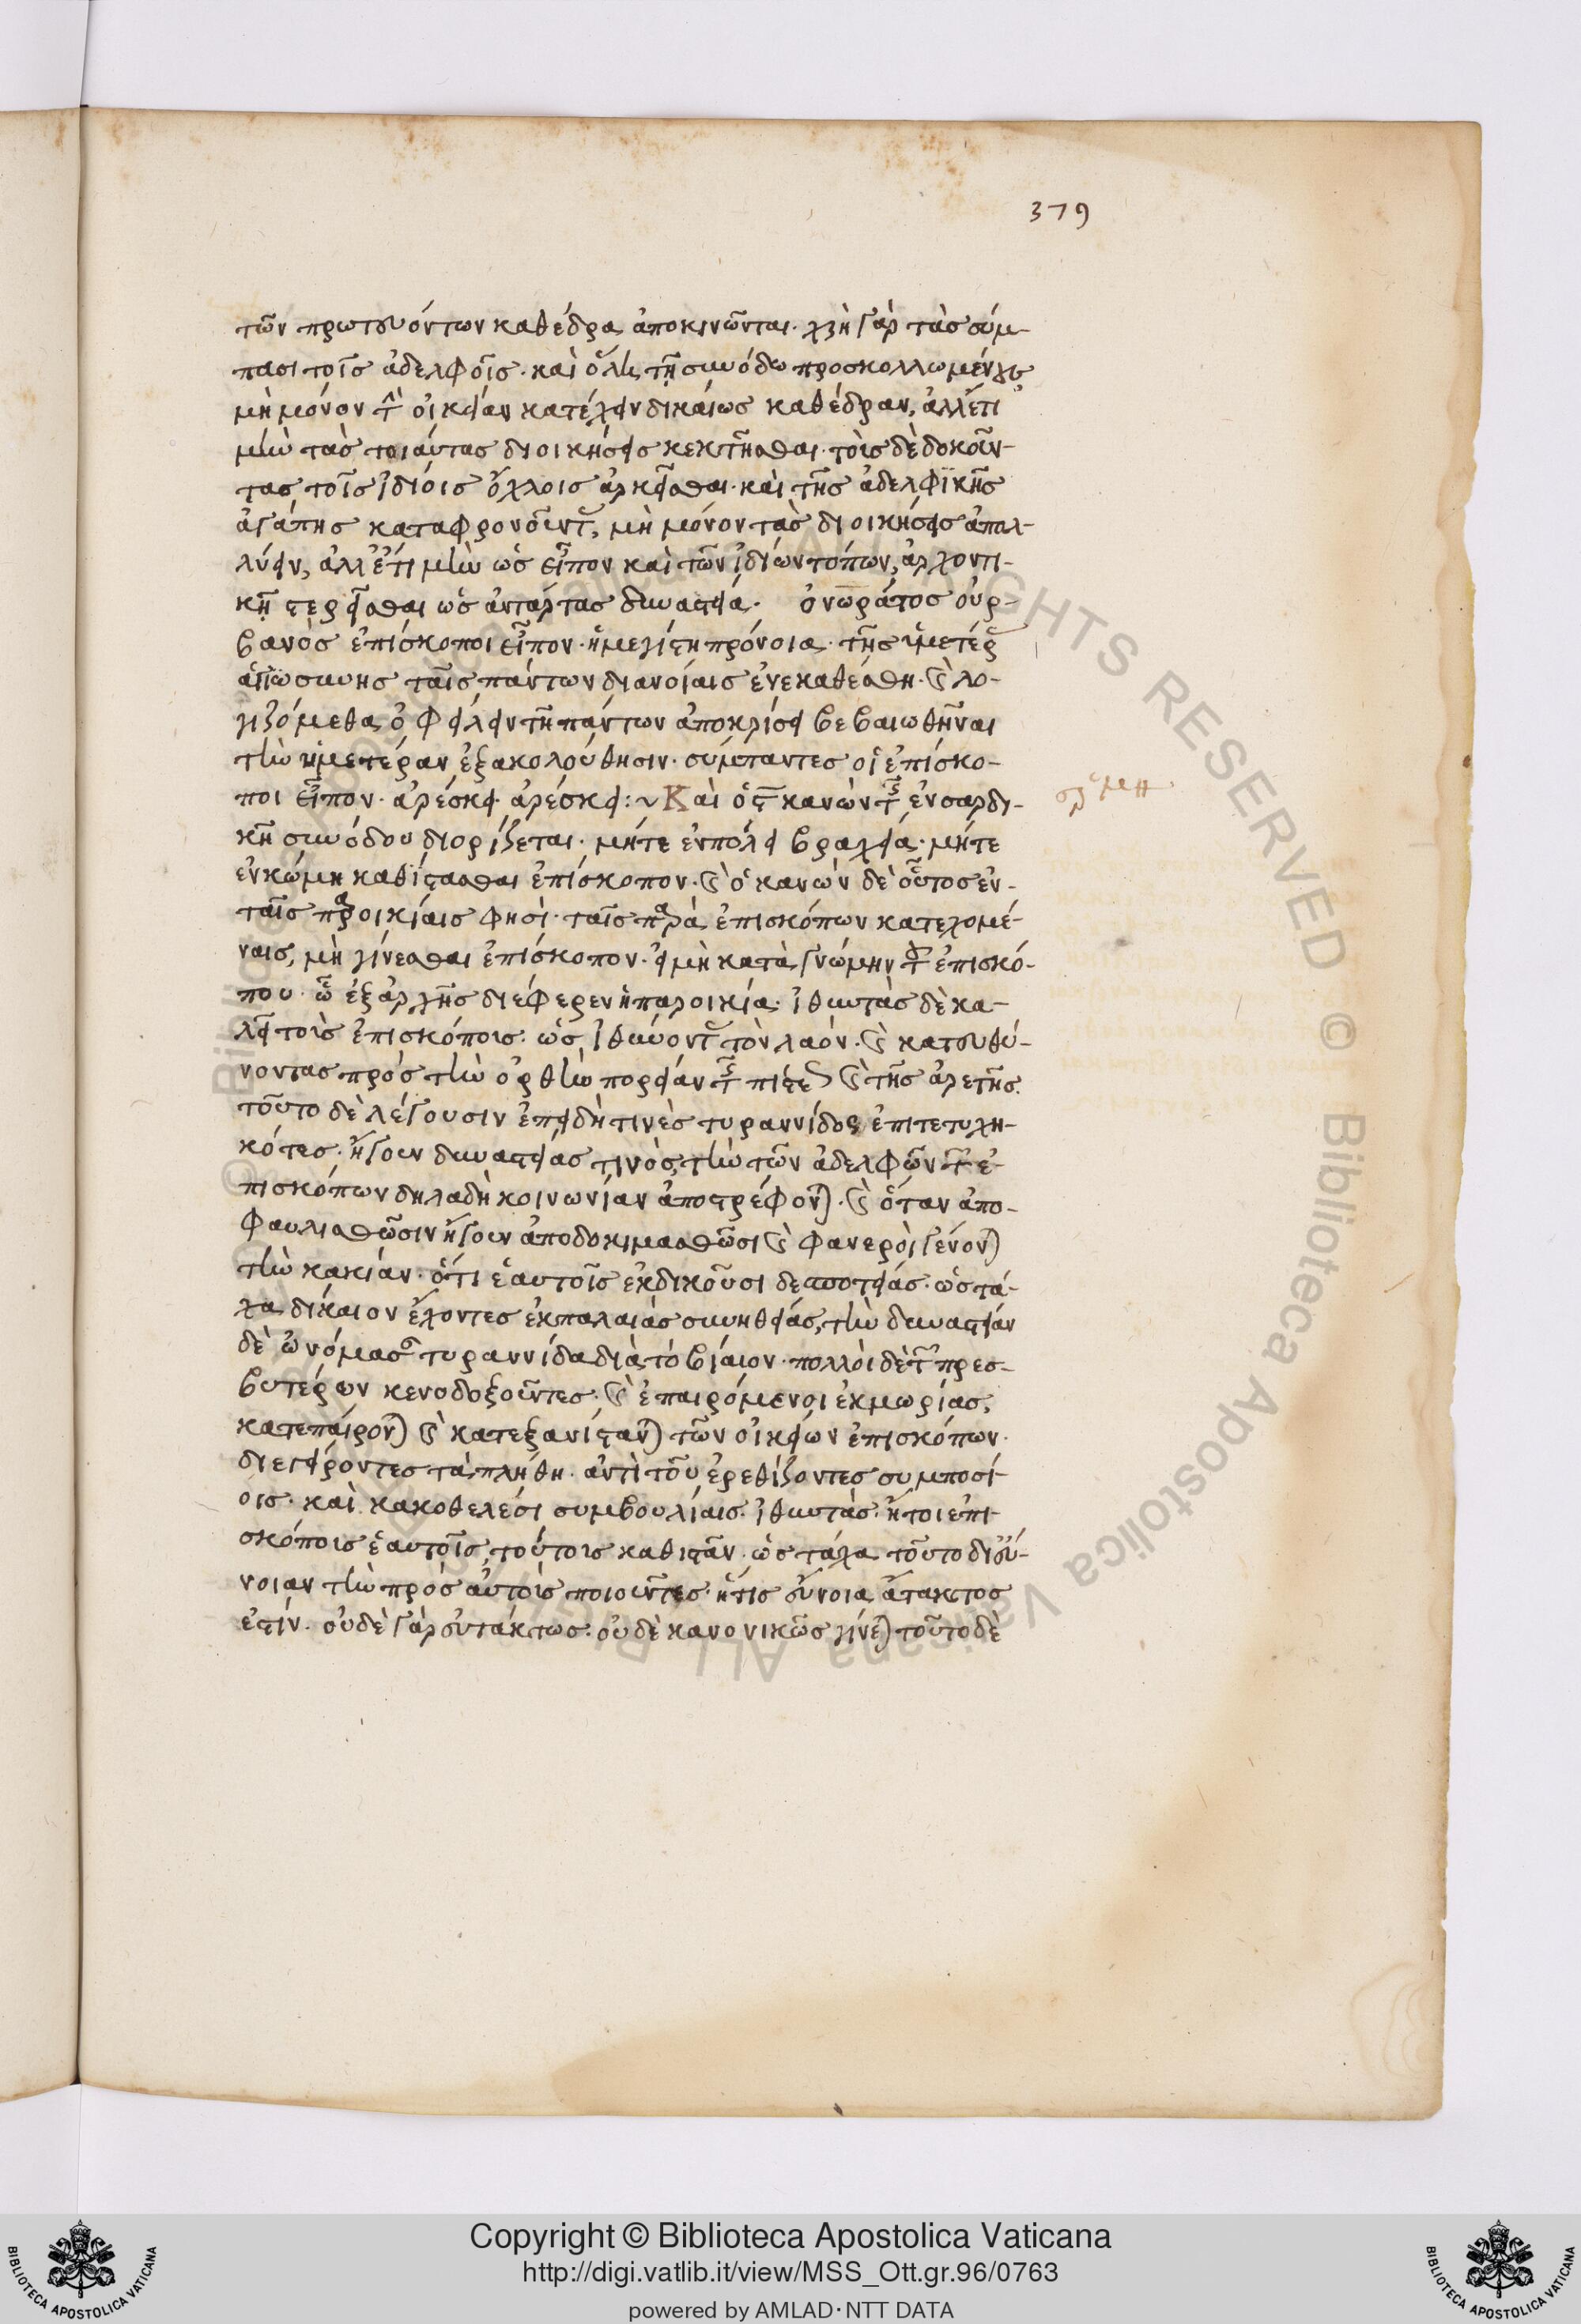 379
τῶν πρωτευόντων καθέδρα ἀποκινῶνται· χρὴ γὰρ τὰσ σύμ-
πασι τοῖσ ἀδελφοῖσ· καὶ ὅλη τῇ συνόδω προσκολλωμένους
μὴ μόνον τὴν οἰκείαν κατέχειν δικαίωσ καθέδραν, ἀλλ' ἔτι
μὴν τὰσ τοιαύτασ διοικήσεισ κεκτῆσθαι· τοὺσ δὲ δοκοῦν-
τασ τοῖσ ἰδίοισ ὄχλοισ ἀρκεῖσθαι· καὶ τῆσ ἀδελφικῆσ
ἀγάπησ καταφρονοῦντ, μὴ μόνον τὰσ διοικήσεισ ἀπολ-
λύειν, ἀλλ' ἔτι μὴν ὡσ εἶπον καὶ τῶν ἰδίων τόπων, ἀρχοντι-
κῇ στερεῖσθαι ὡσ ἀντάρτασ δυναστεία· ὀνωράτοσ οὐρ-
βανὸσ ἐπίσκοποι εἶπον· ἡ μεγίστη πρόνοια· τῆσ ὑμετέρ
ἁγιωσύνησ ταῖσ πάντων διανοίαισ ἐνεκαθέσθη· καὶ λο-
γιζόμεθα ὀφείλειν τῇ πάντων ἀποκρίσει βεβαιωθῆναι
τὴν ἡμετέραν ἐξακολούθησιν· σύμπαντεσ οἱ ἐπίσκο-
ποι εἶπον· ἀρέσκει ἀρέσκει :~ Καὶ ὁ ϛ κανὼν τῆς ἐν σαρδι-
κῇ συνόδου διορίζεται· μήτε ἐν πόλει βραχεία· μήτε
ἐν κώμη καθίστασθαι ἐπίσκοπον· καὶ ὁ κανὼν δὲ οὗτοσ ἐν
ταῖσ παροικίαισ φησὶ· ταῖσ παρὰ ἐπισκόπων κατεχομέ-
ναισ, μὴ γίνεσθαι ἐπίσκοπον· εἰ μὴ κατὰ γνώμην τοῦ ἐπισκό-
που· ὧ ἐξ ἀρχῆσ διέφερεν ἡ παροικία· ἰθυντὰσ δὲ κα-
λεῖ τοὺσ ἐπισκόπουσ· ὡσ ἰθύνοντ τὸν λαόν· καὶ κατευθύ-
νοντασ πρὸσ τὴν ὀρθὴν πορείαν τῆς πίστεως καὶ τῆσ ἀρετῆσ·
τοῦτο δὲ λέγουσιν ἐπειδή τινὲσ τυραννίδος ἐπιτετυχη-
κότεσ· ἤγουν δυναστείασ τινὸσ, τὴν τῶν ἀδελφῶν τῶν ἐ-
πισκόπων δηλαδὴ κοινωνίαν ἀποστρέφονται· καὶ ὅταν ἀπο-
φαυλισθῶσιν ἤγουν ἀποδοκιμασθῶσι καὶ φανεροὶ γένονται
τὴν κακίαν· ὅτι ἑαυτοῖσ ἐκδικοῦσι δεσποτείασ· ὡσ τά-
χα δίκαιον ἔχοντεσ ἐκ παλαιᾶσ συνηθείασ, τὴν δυναστείαν
δὲ ὠνόμασ τυραννίδα διὰ τὸ βίαιον· πολλοὶ δὲ τῶν πρεσ-
βυτέρων κενοδοξοῦντεσ· καὶ ἐπαιρόμενοι ἐκ μωρίασ,
κατεπαίρονται καὶ κατεξανίστανται τῶν οἰκείων ἐπισκόπων·
διεγείροντεσ τὰ πλήθη· ἀντὶ τοῦ ἐρεθίζοντεσ συμποσί-
οισ· καὶ κακοθελέσι συμβουλίαισ· ἰθυντὰσ· ἤτοι ἐπι-
σκόπουσ ἑαυτοῖσ, τούτουσ καθιστᾶν· ὡσ τάχα τοῦτο δι' εὔ-
νοιαν τὴν πρὸσ αὐτοὺσ ποιοῦντεσ· ἥτισ εὔνοια ἄτακτοσ
ἐστίν· οὐδὲ γὰρ εὐτάκτωσ· οὐδὲ κανονικῶσ γίνεται τοῦτο δὲ